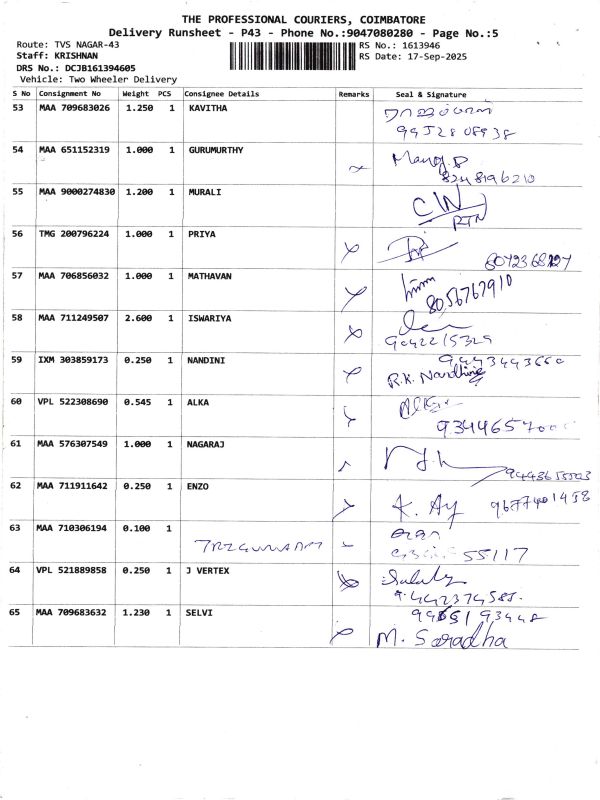 THE PROFESSIONAL COURIERS, COIMBATORE
Delivery Runsheet - P43 - Phone No.:9047080280 - Page No.:5
Route: TVS NAGAR-43 RS No.: 1613946
Staff: KRISHNAN RS Date: 17-Sep-2025
DRS No.: DCJB161394605
Vehicle: Two Wheeler Delivery
S No Consignment No Weight PCS Consignee Details Remarks Seal & Signature
53 MAA 709683026 1.250 1 KAVITHA
54 MAA 651152319 1.000 1 GURUMURTHY
8248196210
55 MAA 9000274830 1.200 1 MURALI
56 TMG 200796224 1.000 1 PRIYA
57 MAA 706856032 1.000 1 MATHAVAN
8056767910
58 MAA 711249507 2.600 1 ISWARIYA
9042215329
59 IXM 303859173 0.250 1 NANDINI
94443443660
R.K. Nandhini
60 VPL 522308690 0.545 1 ALKA
61 MAA 576307549 1.000 1 NAGARAJ
62 MAA 711911642 0.250 1 ENZO
K. Ay 9677401458
63 MAA 710306194 0.100 1
55117
64 VPL 521889858 0.250 1 J VERTEX
9442374585.
65 MAA 709683632 1.230 1 SELVI
M. Saradha